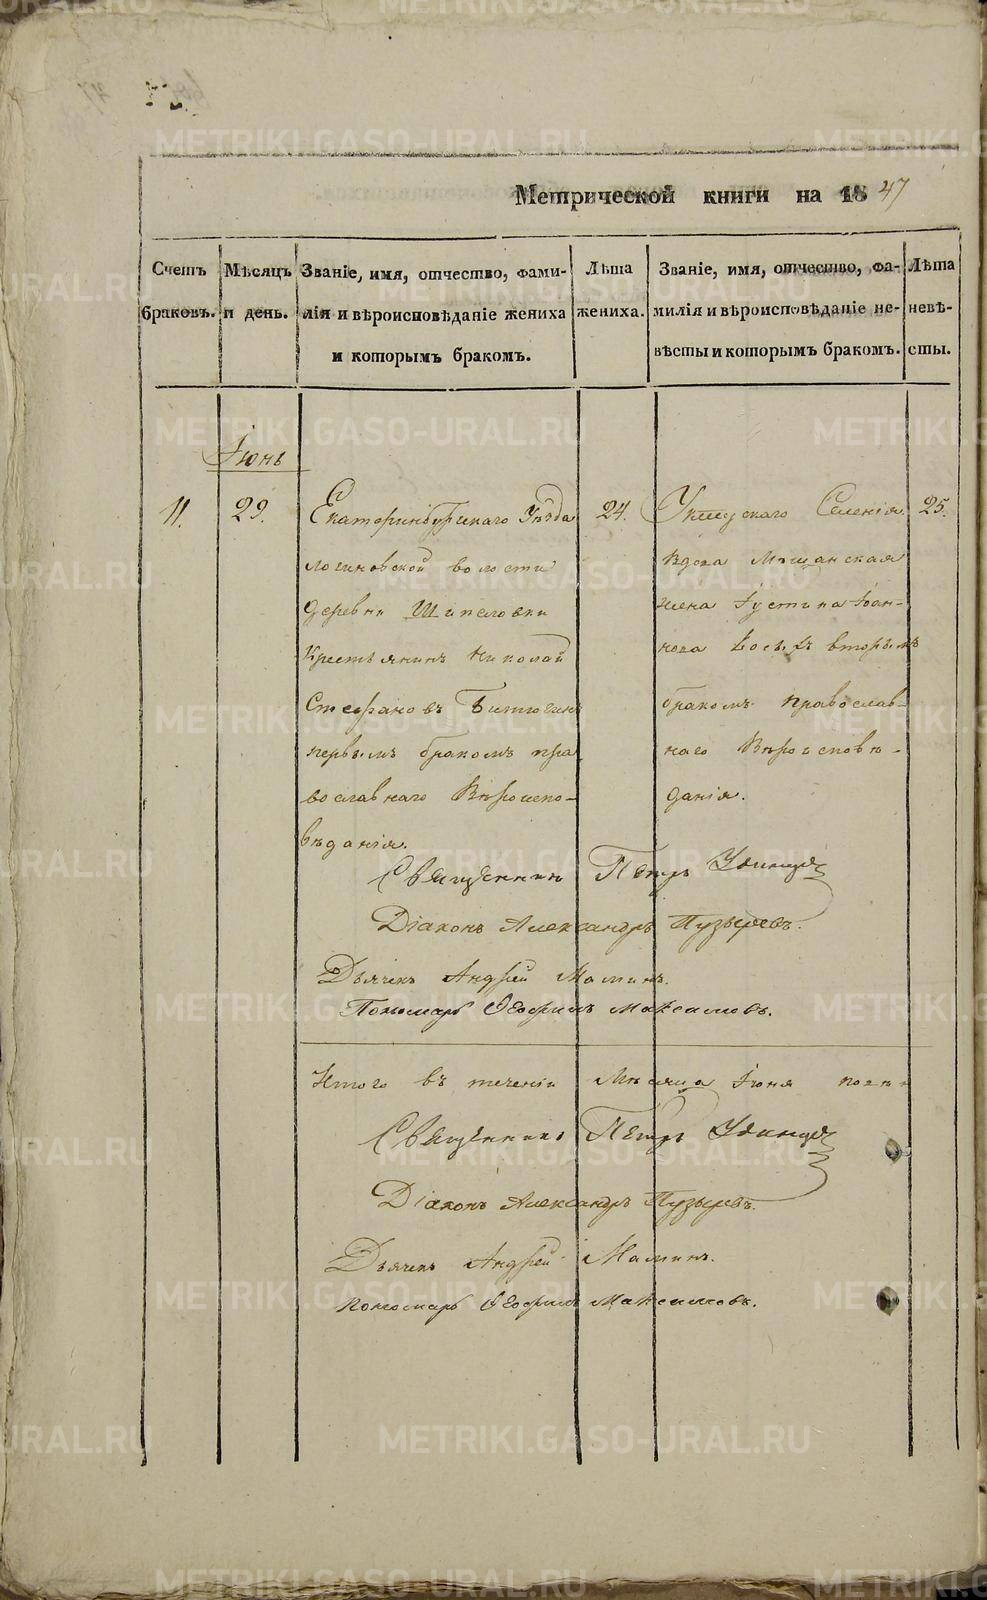 Метрической книги на 1847
Счетъ браковъ.
Мѣсяцъ и день.
Званіе, имя, отчество, фамилія и вѣроисповѣданіе жениха и которымъ бракомъ.
Лѣта жениха.
Званіе, имя, отчество, фамилія и вѣроисповѣданіе невѣсты и которымъ бракомъ.
Лѣта невѣсты.
Іюнь
11.
29.
Екатеринбургскаго Уѣзда
логиновской волости
деревни Шипеловки
Крестьянинъ Николай
Стефановъ
первымъ бракомъ пра
вославнаго Вѣроиспо-
вѣданія.
24.
Селенія
Вдова Мѣщанская
жена Іустина Іоан-
нова вторымъ
бракомъ православ-
наго Вѣроисповѣ-
данія.
25.
Священникъ Петръ Удинцевъ
Діаконъ Александръ Пузыревъ.
Дьячекъ Андрей Маминъ.
Пономарь Ѳеофилъ Максимовъ.
Итого въ теченіи Мѣсяца Іюня
Священникъ Петръ Удинцевъ
Діаконъ Александръ Пузыревъ.
Дьячекъ Андрей Маминъ.
Пономарь Ѳеофилъ Максимовъ.
METRIKI.GASO-URAL.RU